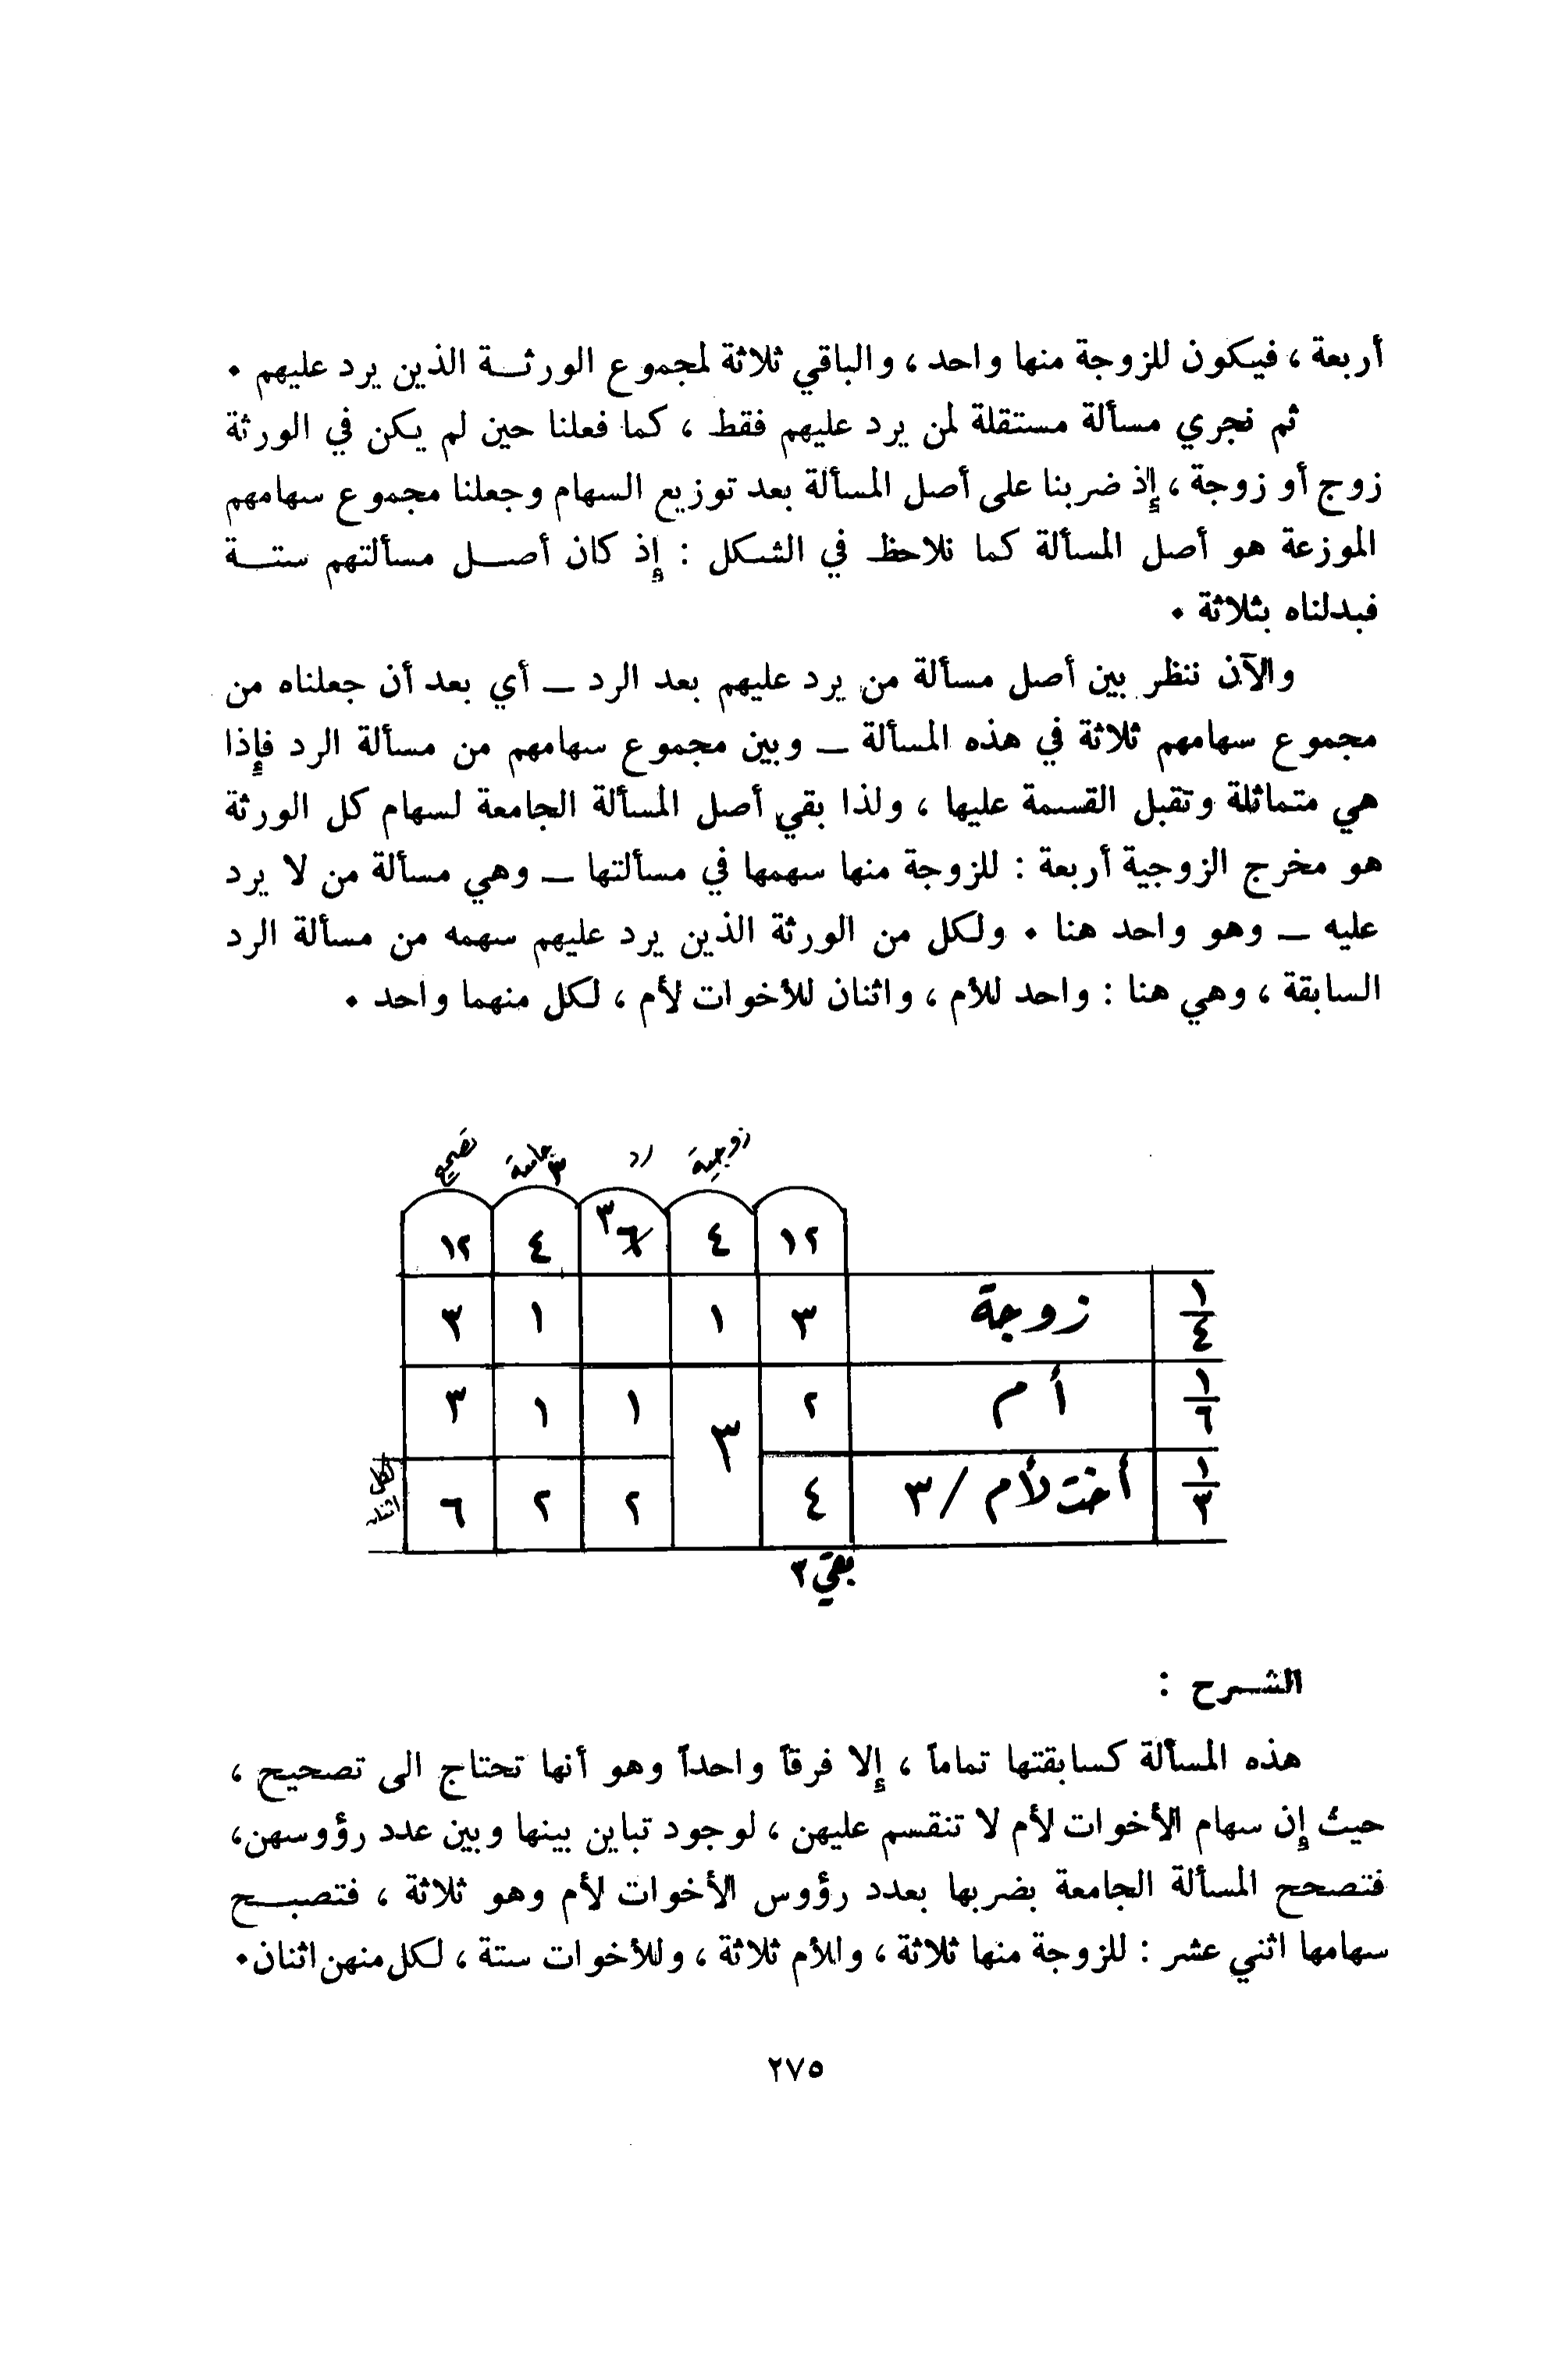 أربعة ، فيكون للزوجة منها واحد ، والباقي ثلاثة لمجموع الورثــة الذين يرد عليهم •
ثم نجري مسألة مستقلة لمن يرد عليهم فقط ، كما فعلنا حين لم يكن في الورثة
زوج أو زوجة ، إذ ضربنا على أصل المسألة بعد توزيع السهام وجعلنا مجموع سهامهم
الموزعة هو أصل المسألة كما نلاحظ في الشكل : إذ كان أصــل مسألتهم ستــة
فبدلناه بثلاثة •
والآن ننظر بين أصل مسألة من يرد عليهم بعد الرد – أي بعد أن جعلناه من
مجموع سهامهم ثلاثة في هذه المسألة – وبين مجموع سهامهم من مسألة الرد فإذا
هي متماثلة وتقبل القسمة عليها ، ولذا بقي أصل المسألة الجامعة لسهام كل الورثة
هو مخرج الزوجية أربعة : للزوجة منها سهمها في مسألتها – وهي مسألة من لا يرد
عليه – وهو واحد هنا • ولكل من الورثة الذين يرد عليهم سهمه من مسألة الرد
السابقة ، وهي هنا : واحد للأم ، واثنان للأخوات لأم ، لكل منهما واحد •
زوجية رد جامعة ٣ تصحيح
١٢ ٤ ٦ ٣ ٤ ١٢
١/٤ زوجة ٣ ١ ١ ٣
١/٦ أم ٢ ٣ ١ ١ ٣
١/٣ أخت لأم / ٣ ٤ ٢ ٢ ٦ لكل اثنان
بقي ٣
الشــرح :
هذه المسألة كسابقتها تماماً ، إلا فرقاً واحداً وهو أنها تحتاج الى تصحيح ،
حيث إن سهام الأخوات لأم لا تنقسم عليهن ، لوجود تباين بينها وبين عدد رؤوسهن،
فتصحح المسألة الجامعة بضربها بعدد رؤوس الأخوات لأم وهو ثلاثة ، فتصبــح
سهامها اثني عشر : للزوجة منها ثلاثة ، وللأم ثلاثة ، وللأخوات ستة ، لكل منهن اثنان•
٢٧٥